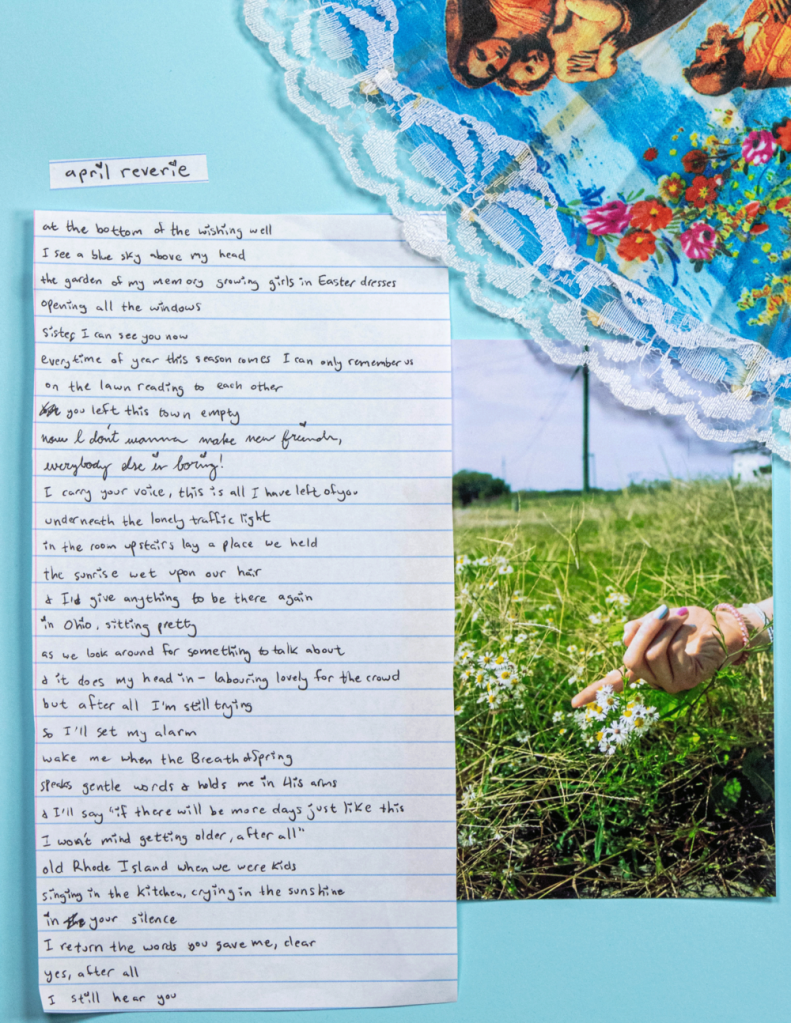 april reverie
at the bottom of the wishing well
I see a blue sky above my head
the garden of my memory growing girls in Easter dresses
opening all the windows
sister I can see you now
every time of year this season comes I can only remember us
on the lawn reading to each other
you left this town empty
now I don't wanna make new friends,
everybody else is boring!
I carry your voice, this is all I have left of you
underneath the lonely traffic light
in the room upstairs lay a place we held
the sunrise wet upon our hair
& I'd give anything to be there again
in Ohio, sitting pretty
as we look around for something to talk about
& it does my head in - labouring lovely for the crowd
but after all I'm still trying
so I'll set my alarm
wake me when the Breath of Spring
speaks gentle words & holds me in His arms
& I'll say "if there will be more days just like this
I won't mind getting older, after all"
old Rhode Island when we were kids
singing in the kitchen, crying in the sunshine
in your silence
I return the words you gave me, clear
yes, after all
I still hear you